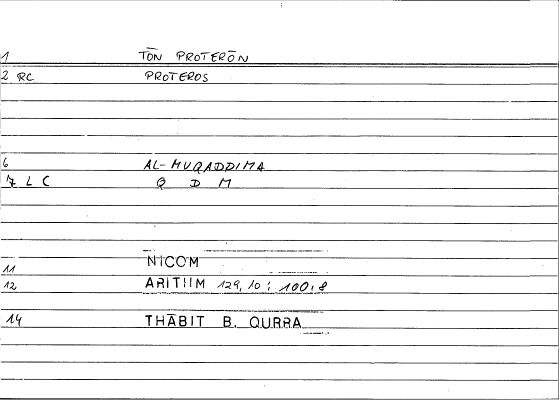 1 TŌN PROTERŌN
2 RC PROTEROS
6 AL-MUQADDIMA
7 L C Q D M
11 NICOM
12 ARITIIM 129,10 : 100,8
14 THĀBIT B. QURRA